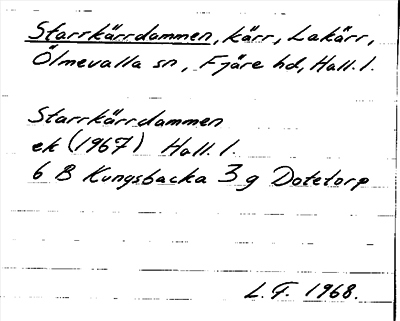 Starrkärrdammen, kärr, Lakärr,
Ölmevalla sn, Fjäre hd, Hall. l.
Starrkärrdammen
ek (1967) Hall. l.
6 B Kungsbacka 3g Dotetorp
L. F. 1968.